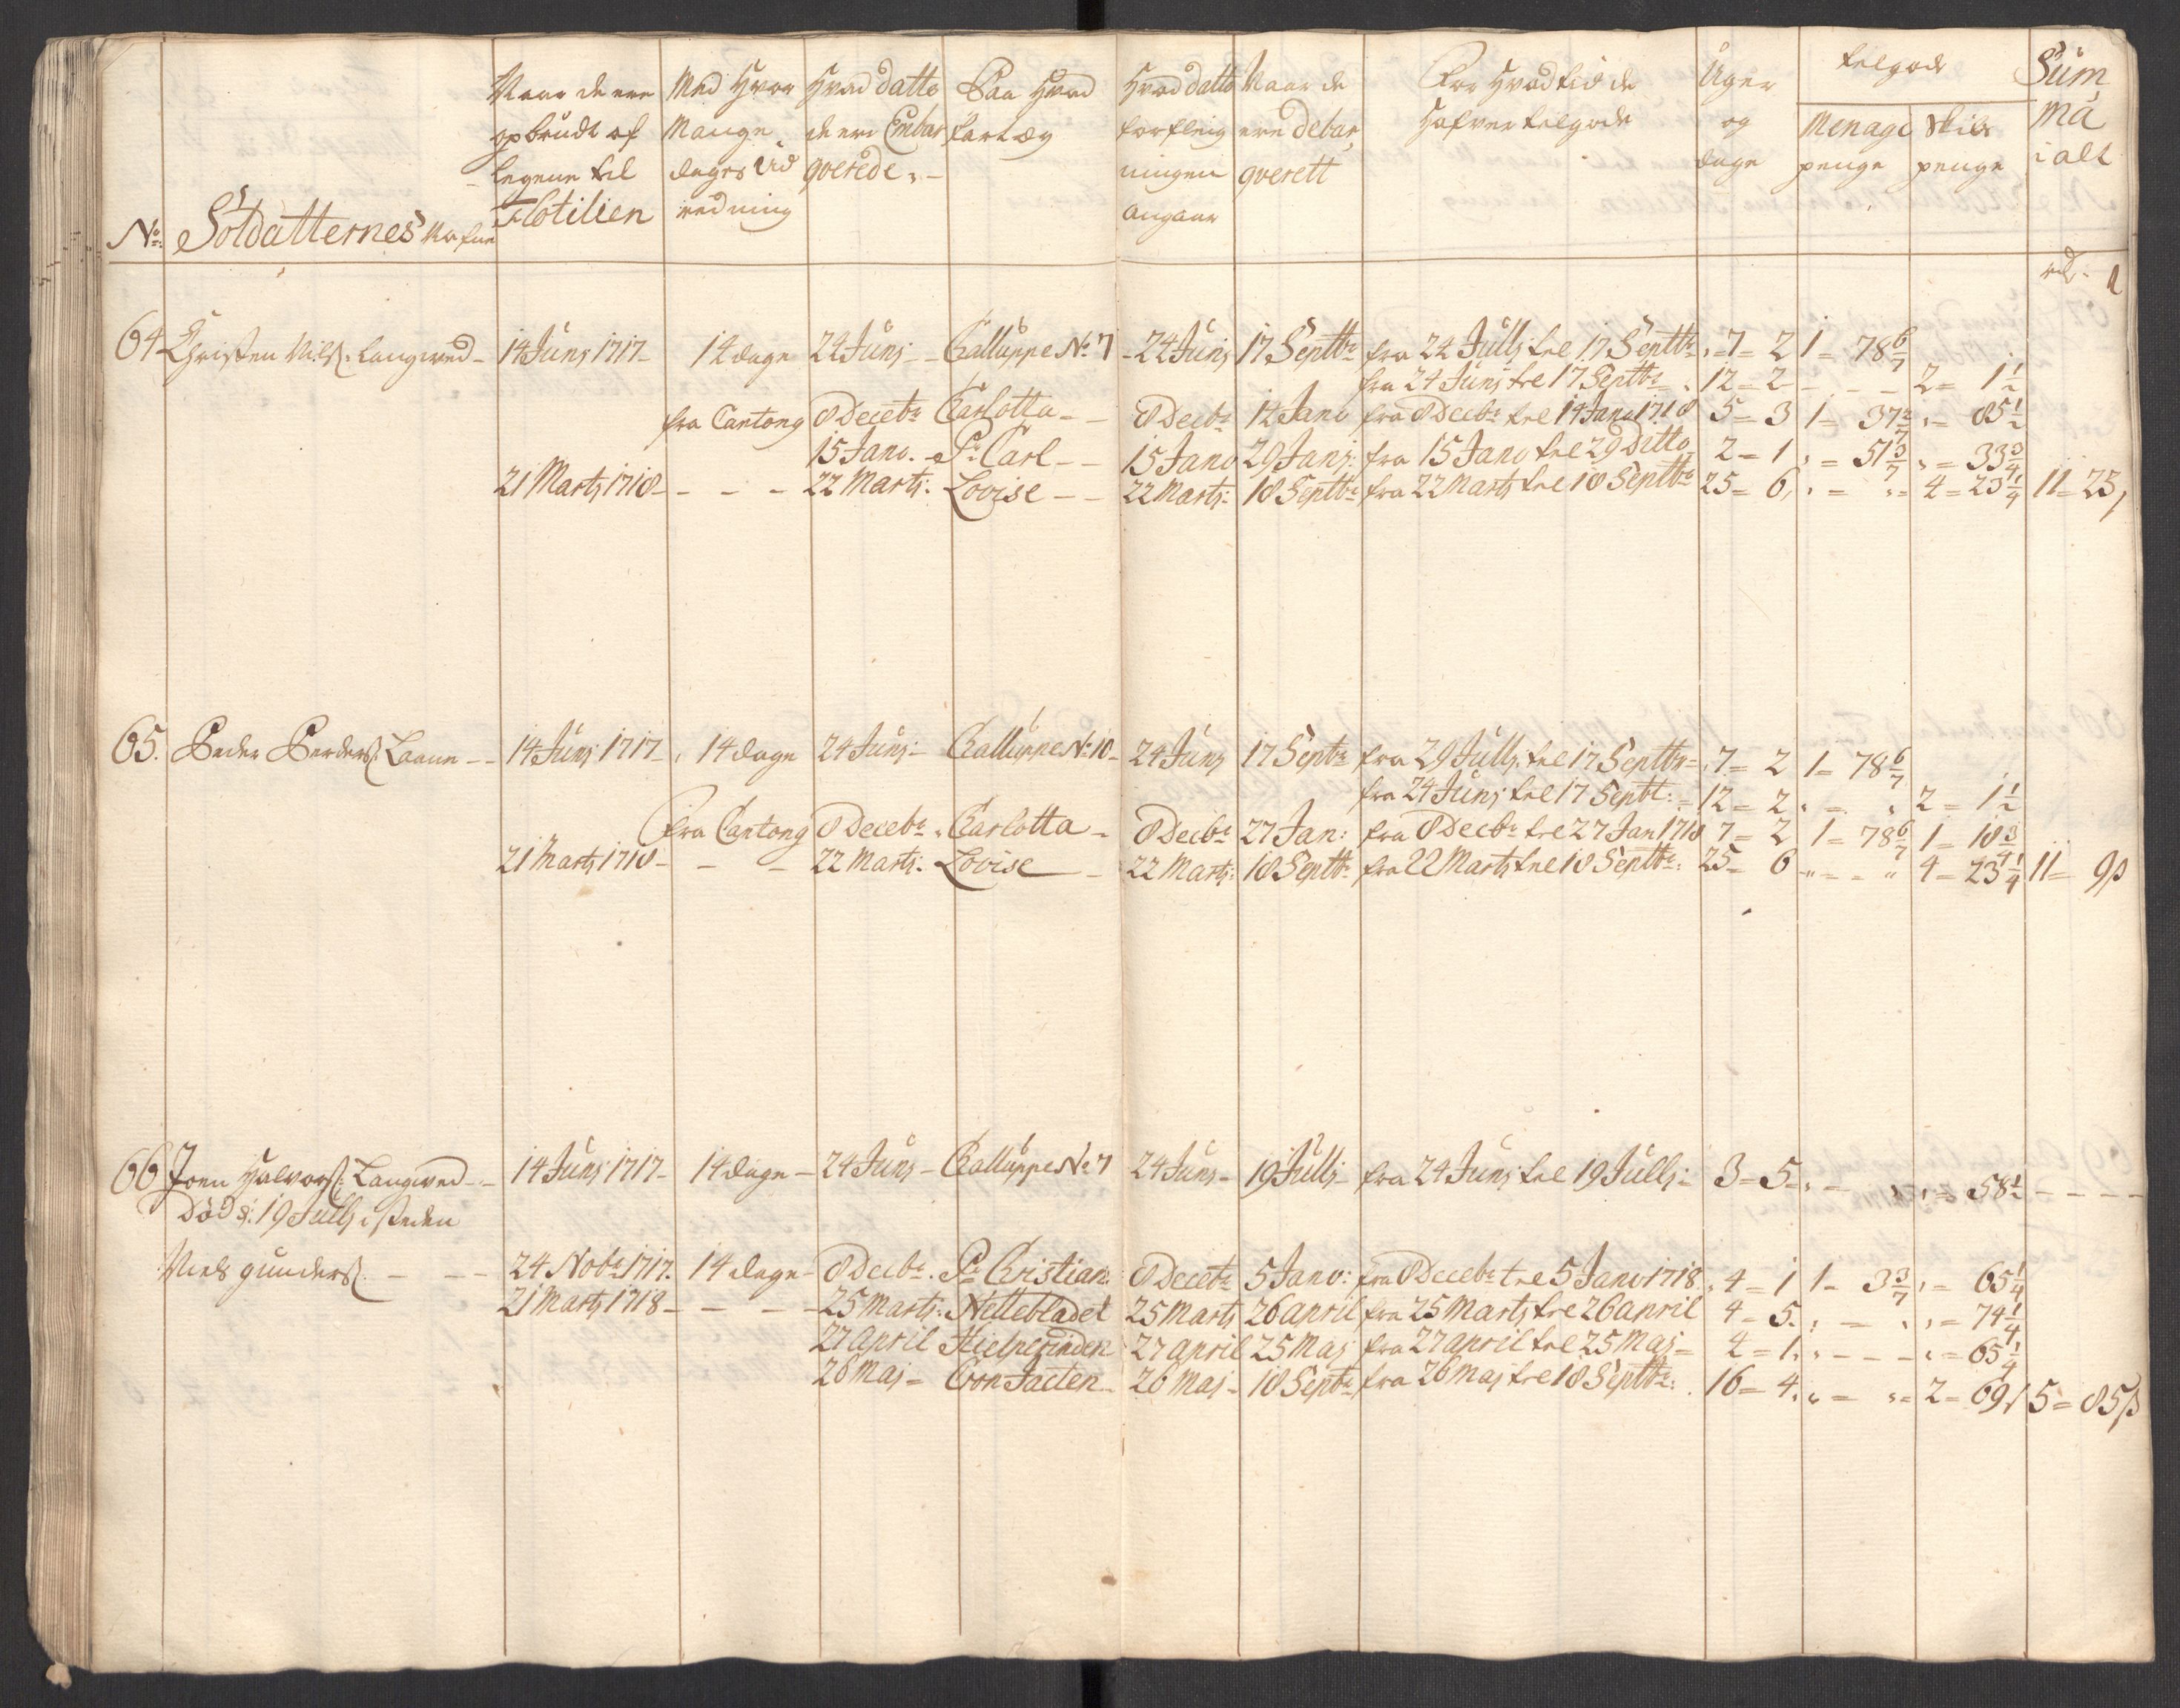 No: Soldatternes Nafne
Naar de ere opbrudt af legene til Flotilien
Med Hvor Mange dages Udredning
Hvad datto de ere Embarqverede
Paa Hvad fartøy
Hvad datto forpleigningen angaar
Naar de ere debarqverett
For Hvad tid de Hafver tilgode
Uger og dage
tilgode
Menage penge
Skibs penge
Summa i alt
rd: ß
64 Christen Nilß: Langwed – 14 Junj 1717 – 14 dage 24 Junj – Challuppe No 7 – 24 Junj 17 Septbr fra 24 Julli til 17 Septbr 7 = 2 1 = 78 6/7
fra 24 Junj til 17 Septbr 12 = 2 – – – 2 = 1 1/2
fra Cantong 8 Decebr Carlotta – 8 Decbr 14 Jano fra 8 Decbr til 14 Jano 1718 5 = 3 1 = 37 2/7 = 85 1/2
15 Jano. – Pr: Carl – – 15 Jano 29 Janj: fra 15 Jano til 29 Ditto 2 = 1 = 51 3/7 = 33 3/4
21 Martj 1718 – – – – 22 Martj: Lovise – – 22 Martj: 18 Septbr fra 22 Martj til 18 Septbr 25 = 6 = = 4 = 23 1/4 11 = 23
65. Peder Perderß: Laane – – 14 Junj 1717 – 14 dage 24 Junj: – Challuppe No: 10 – 24 Junj 17 Septbr fra 29 Jullj. til 17 Septbr = 7 = 2 1 = 78 6/7
fra 24 Junj til 17 Septbr: – 12 = 2 2 = 1 1/2
fra Cantong 8 Decebr. Carlotta – 8 Decbr 27 Jan: fra 8 Decbr til 27 Jan 1718 7 = 2 1 = 78 6/7 1 = 18 3/4
21 Martj 1718 – – – 22 Martj: Lovise – 22 Martj: 18 Septbr fra 22 Martj til 18 Septbr: 25 = 6 4 = 23 1/4 11 = 9ß
66 Joen Halvorß: Langwed – 14 Junj 1717 – 14 dage – 24 Junj – Challuppe No 7 24 Junj – 19 Jullj – fra 24 Junj til 19 Jullj: 3 = 5 – = 58 1/2 – – – –
Død d: 19 Jullj i steden
Niels gunderß. – – – 24 Nobr 1717. 14 dage – 8 Decbr. Pr Cristian. 8 Decebr 5 Jano: fra 8 Decebr til 5 Jano 1718 4 = 1 1 = 3 3/7 = 65 1/4
21 Martj 1718 – – – – 25 Martj: Nettebladet 25 Martj 26 april fra 25 Martj til 26 april 4 = 5. = 74 1/4
27 april Hielperinden 27 april 25 Maj fra 27 april til 25 Maj – 4 = 1 – – – = 65 1/4
26 Maj – ConJacten – 26 Maj – 18 Septbr fra 26 Maj til 18 Septbr: 16 = 4. = 2 = 69 5 = 85ß